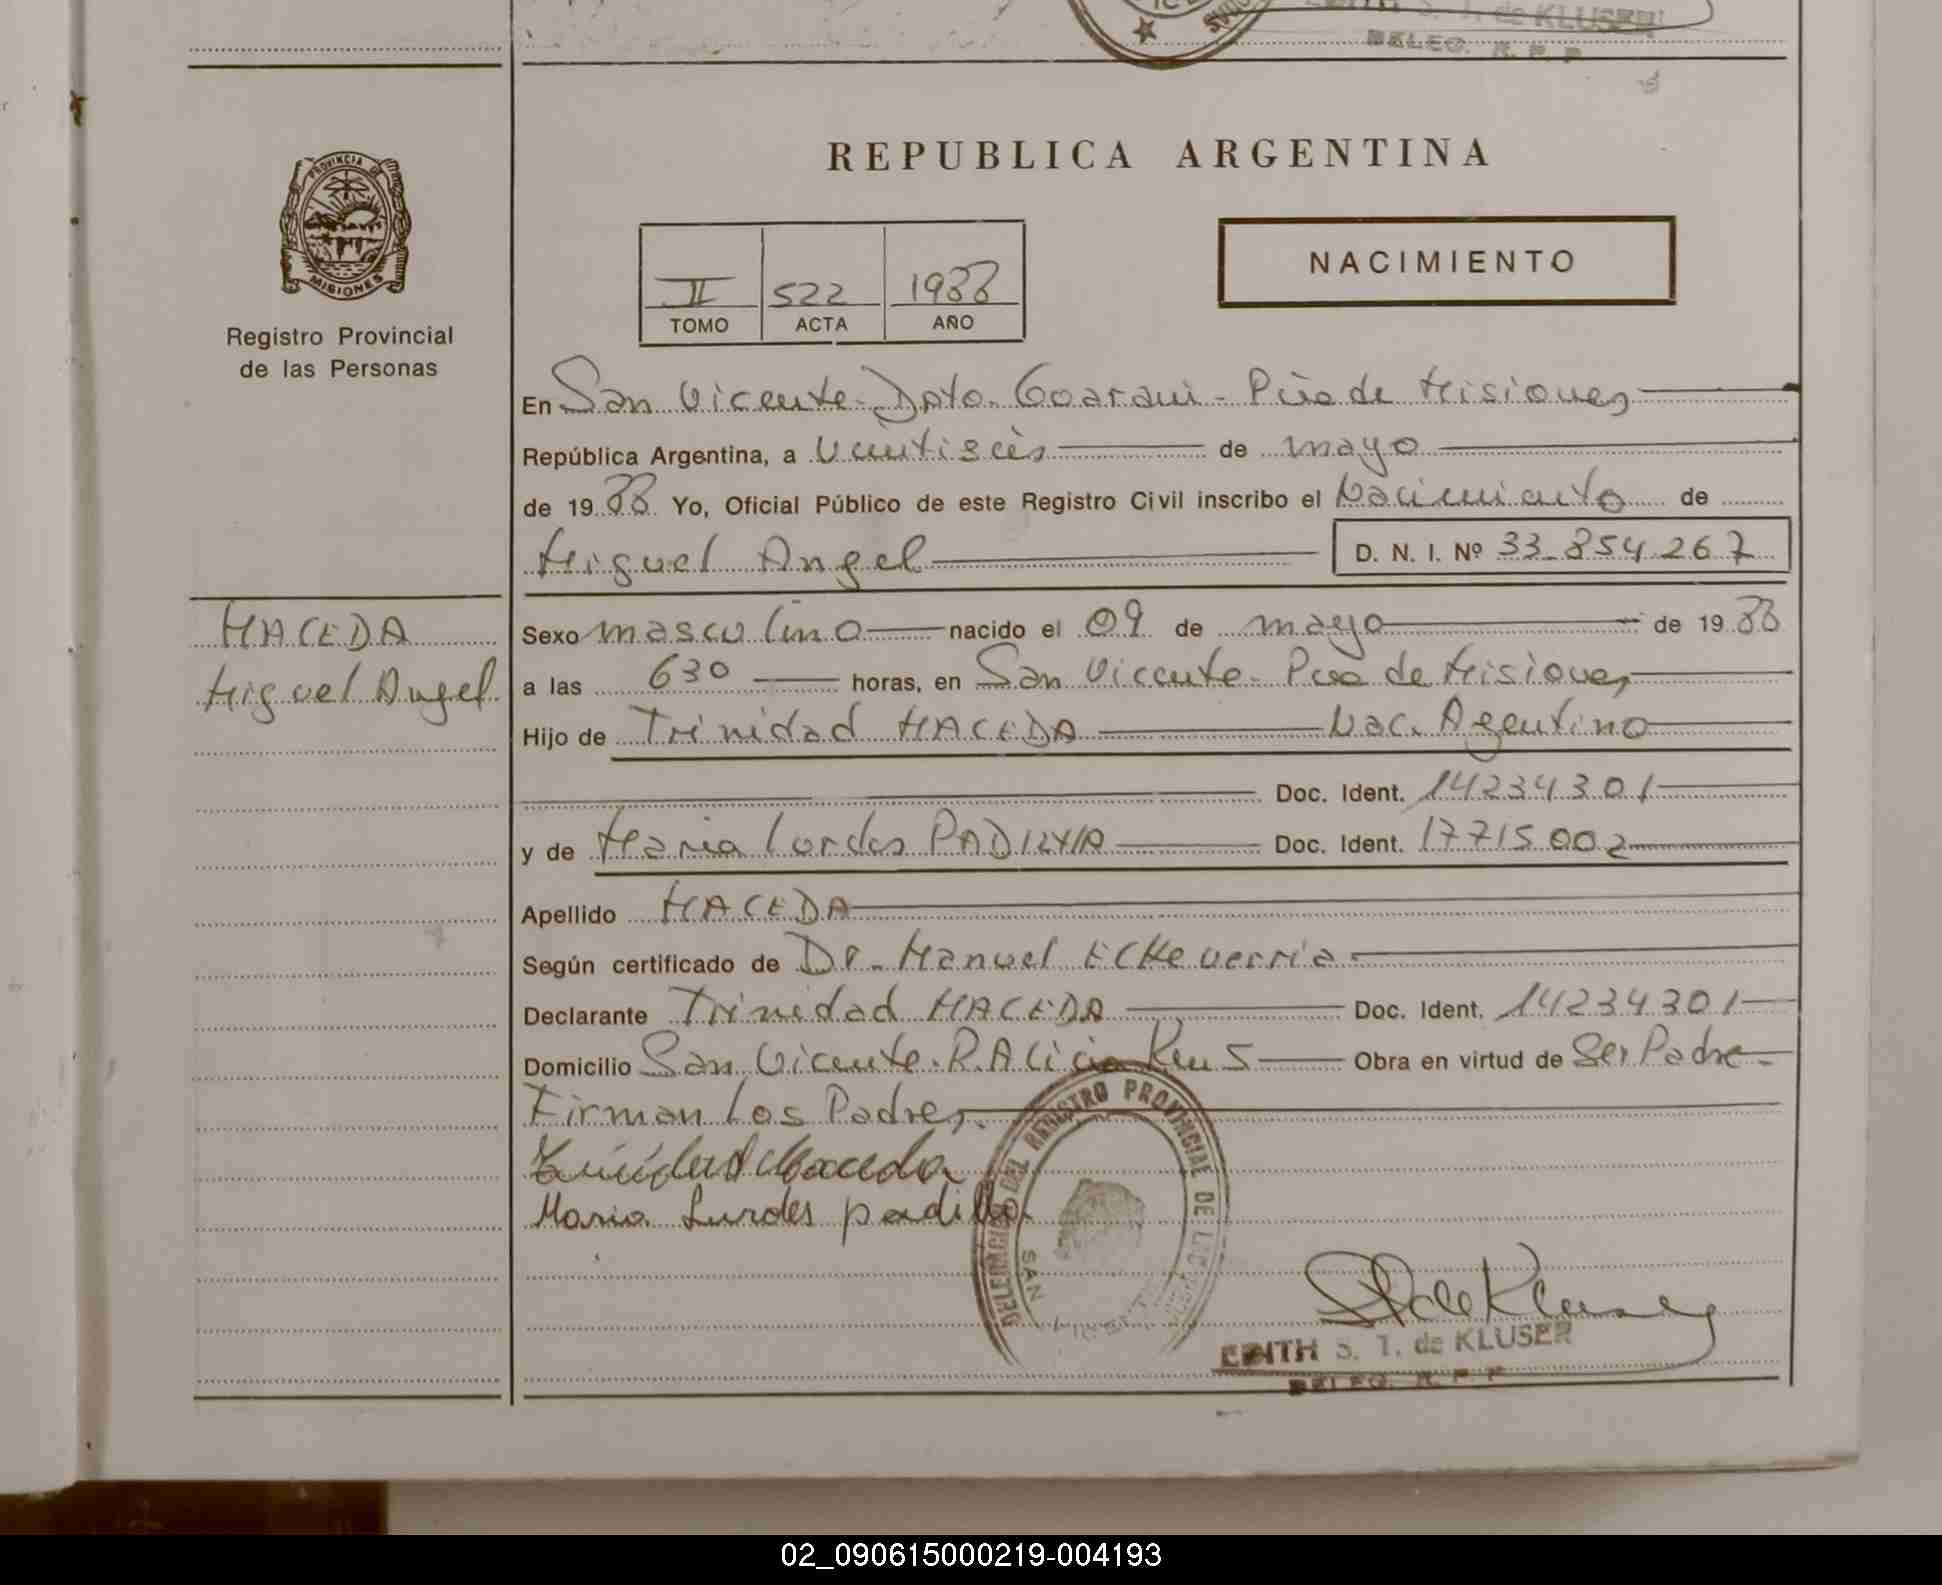 EDITH S. T. de KLUSER
DELEG. R. P. P.
PROVINCIA DE
MISIONES
Registro Provincial
de las Personas
REPUBLICA ARGENTINA
II 522 1988
TOMO ACTA AÑO
NACIMIENTO
En San Vicente - Dpto. Guarani - Pcia de Misiones
República Argentina, a Veintiseis de mayo
de 1988 Yo, Oficial Público de este Registro Civil inscribo el Nacimiento de
Miguel Angel D. N. I. Nº 33.854.267
HACEDA
Miguel Angel
Sexo masculino nacido el 09 de mayo de 1988
a las 630 horas, en San Vicente - Pcia de Misiones
Hijo de Trinidad MACEDA Nac. Argentino
Doc. Ident. 14234301
y de Maria Lordes PADILHA Doc. Ident. 17715002
Apellido MACEDA
Según certificado de Dr. Manuel ECKeverria
Declarante Trinidad MACEDA Doc. Ident. 14234301
Domicilio San Vicente - R. Alicia Obra en virtud de Ser Padre
Firman Los Padres.
Trinidad Maceda
Maria Lurdes padilha
DELEGACION DEL REGISTRO PROVINCIAL DE LAS
SAN VICENTE
EDITH S. T. de KLUSER
DELEG. R. P. P.
02_090615000219-004193